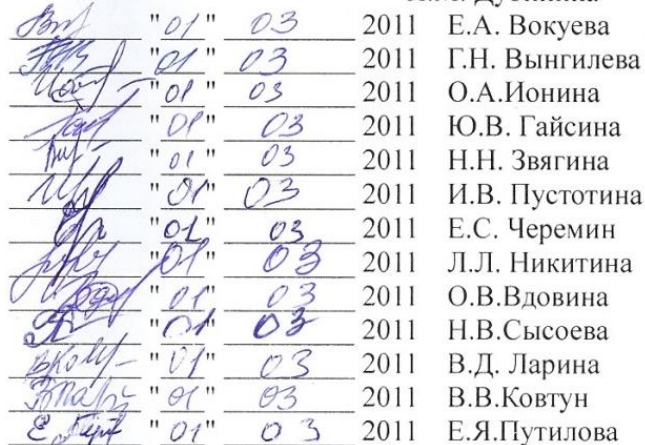 "01" 03 2011 Е.А. Вокуева
"01" 03 2011 Г.Н. Вынгилева
"01" 03 2011 О.А.Ионина
"01" 03 2011 Ю.В. Гайсина
"01" 03 2011 Н.Н. Звягина
"01" 03 2011 И.В. Пустотина
"01" 03 2011 Е.С. Черемин
"01" 03 2011 Л.Л. Никитина
"01" 03 2011 О.В.Вдовина
"01" 03 2011 Н.В.Сысоева
"01" 03 2011 В.Д. Ларина
"01" 03 2011 В.В.Ковтун
"01" 03 2011 Е.Я.Путилова